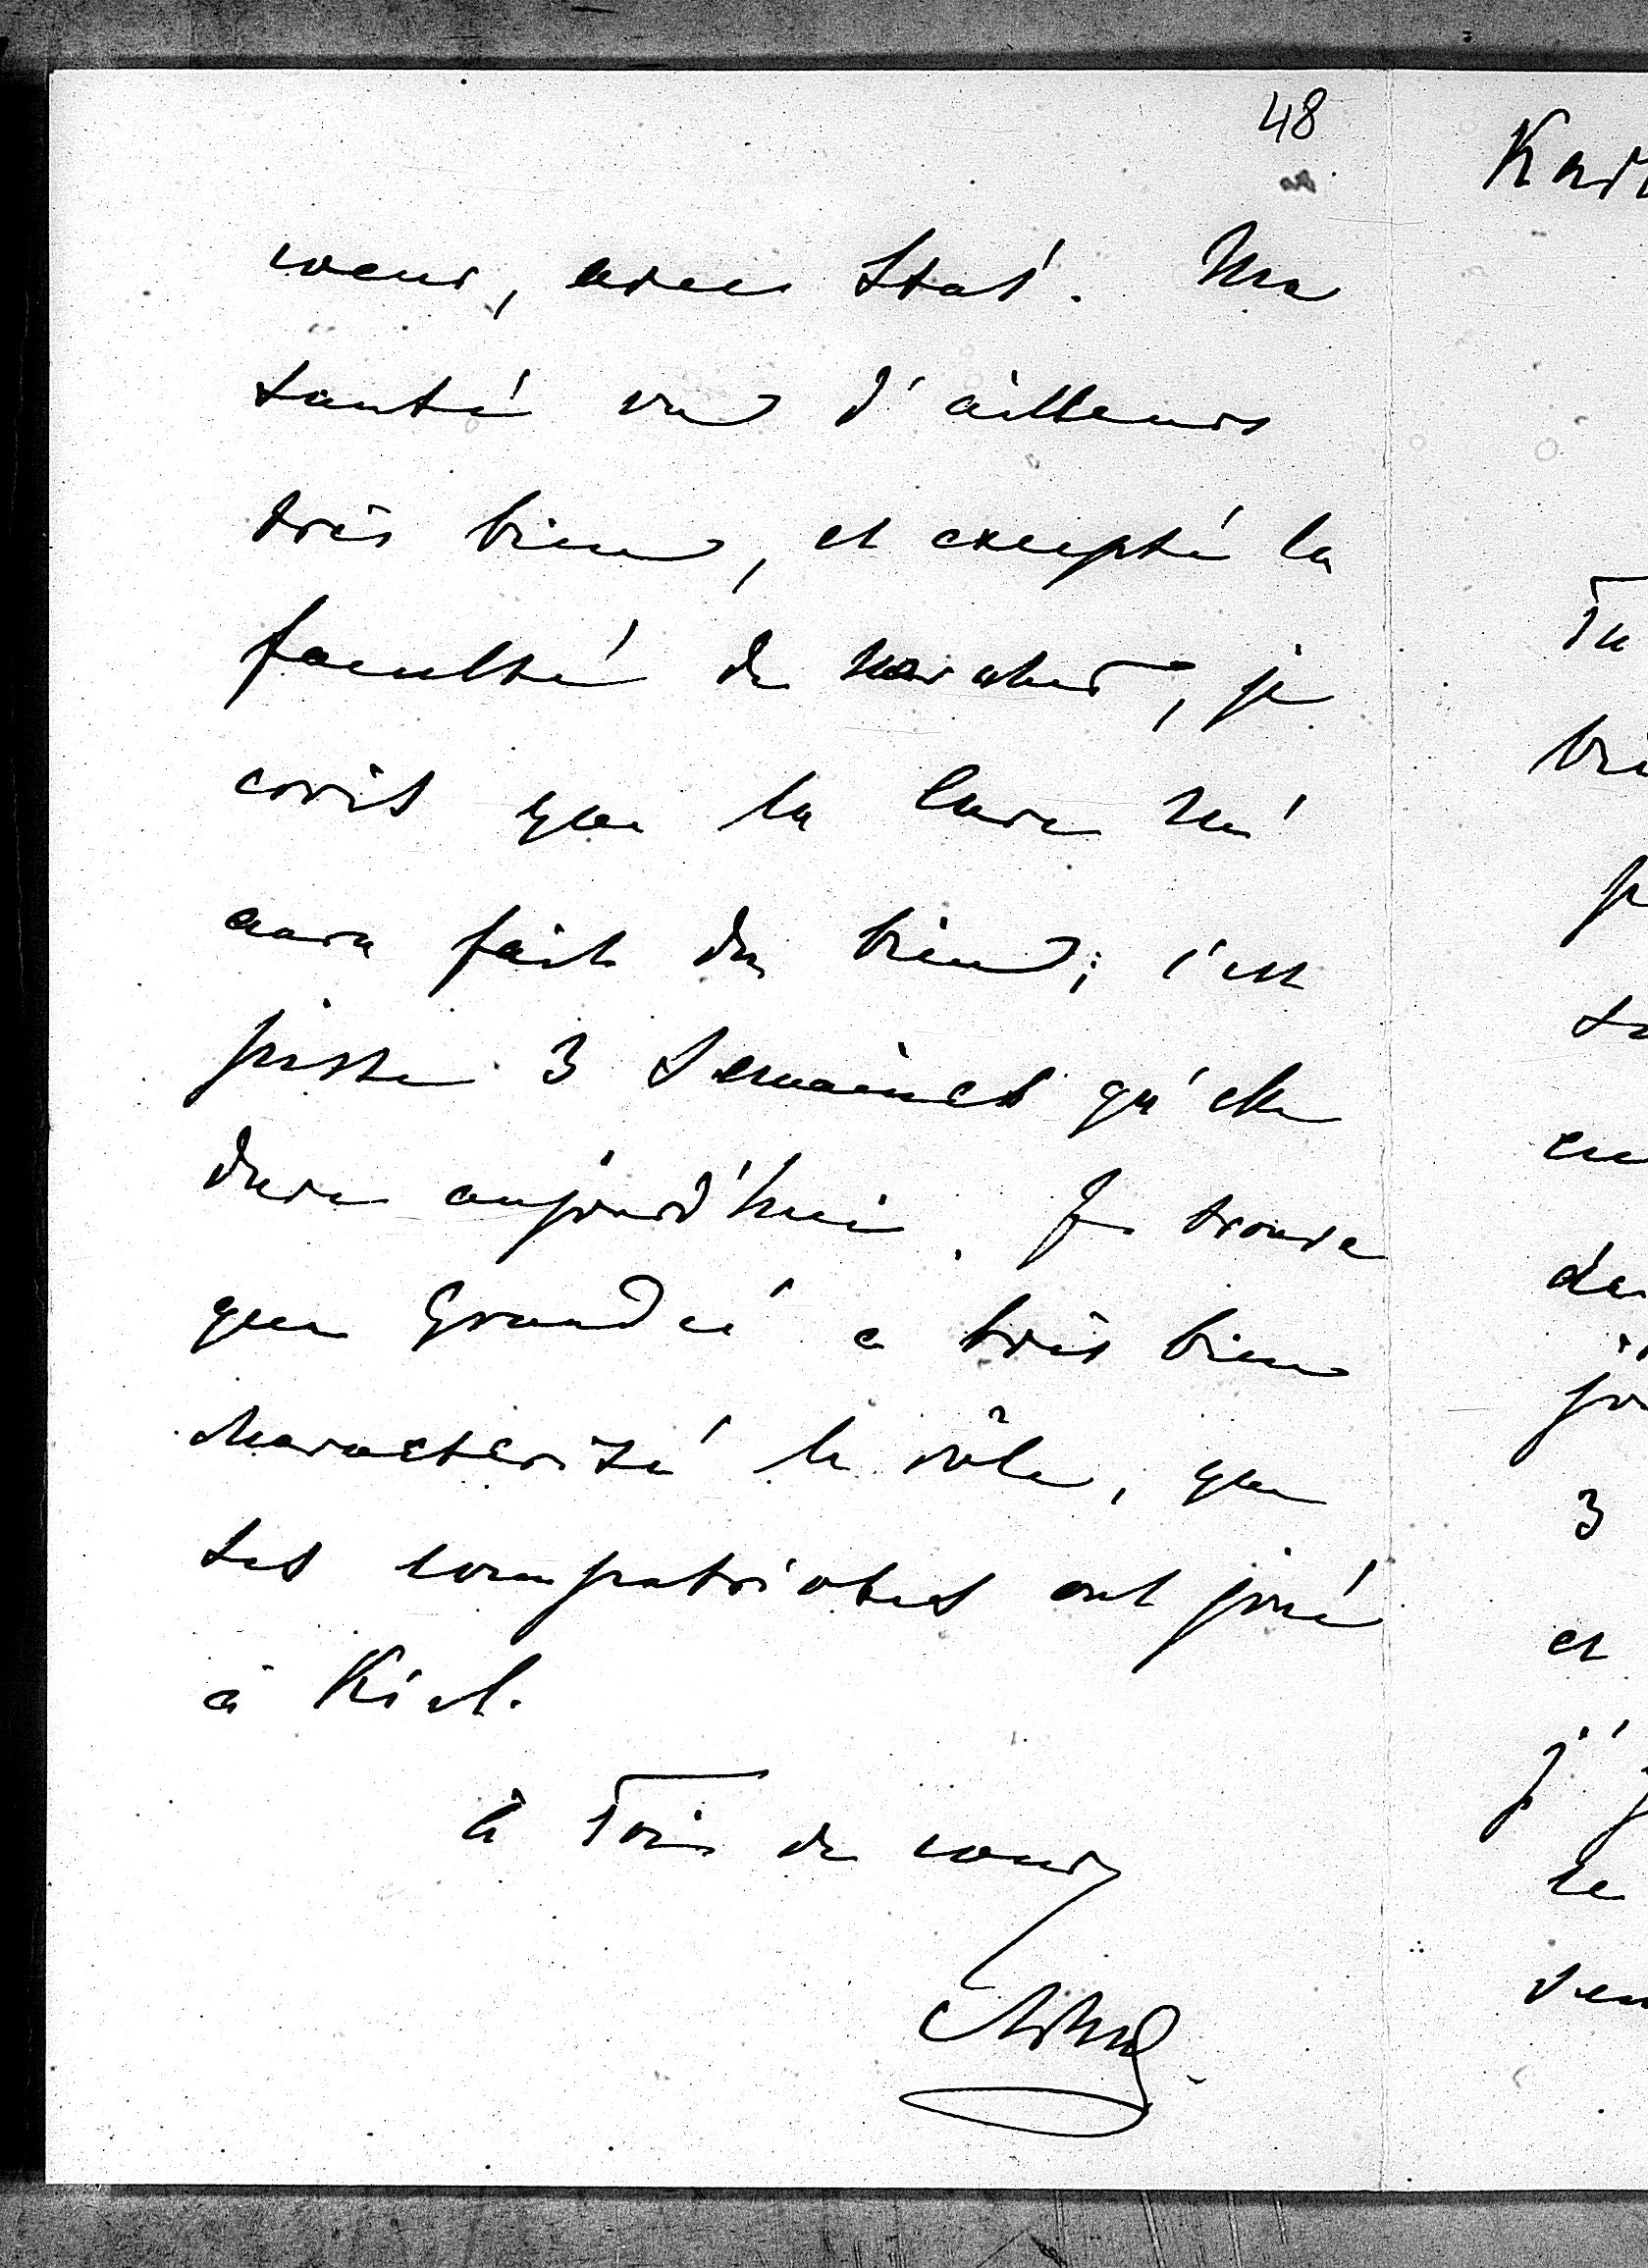 48
coeur, avec Stas'. Ma
santé va d'ailleurs
très bien, et excepté la
faculté de marcher, je
crois que la Cure m'
aura fait du bien; c'est
juste 3 Semaines qu'elle
dure aujourd'hui. Je trouve
que Grandeé a très bien
characterizé le rôle, que
ses compatriotes ont joué
à Kiel.
à Toi de coeur